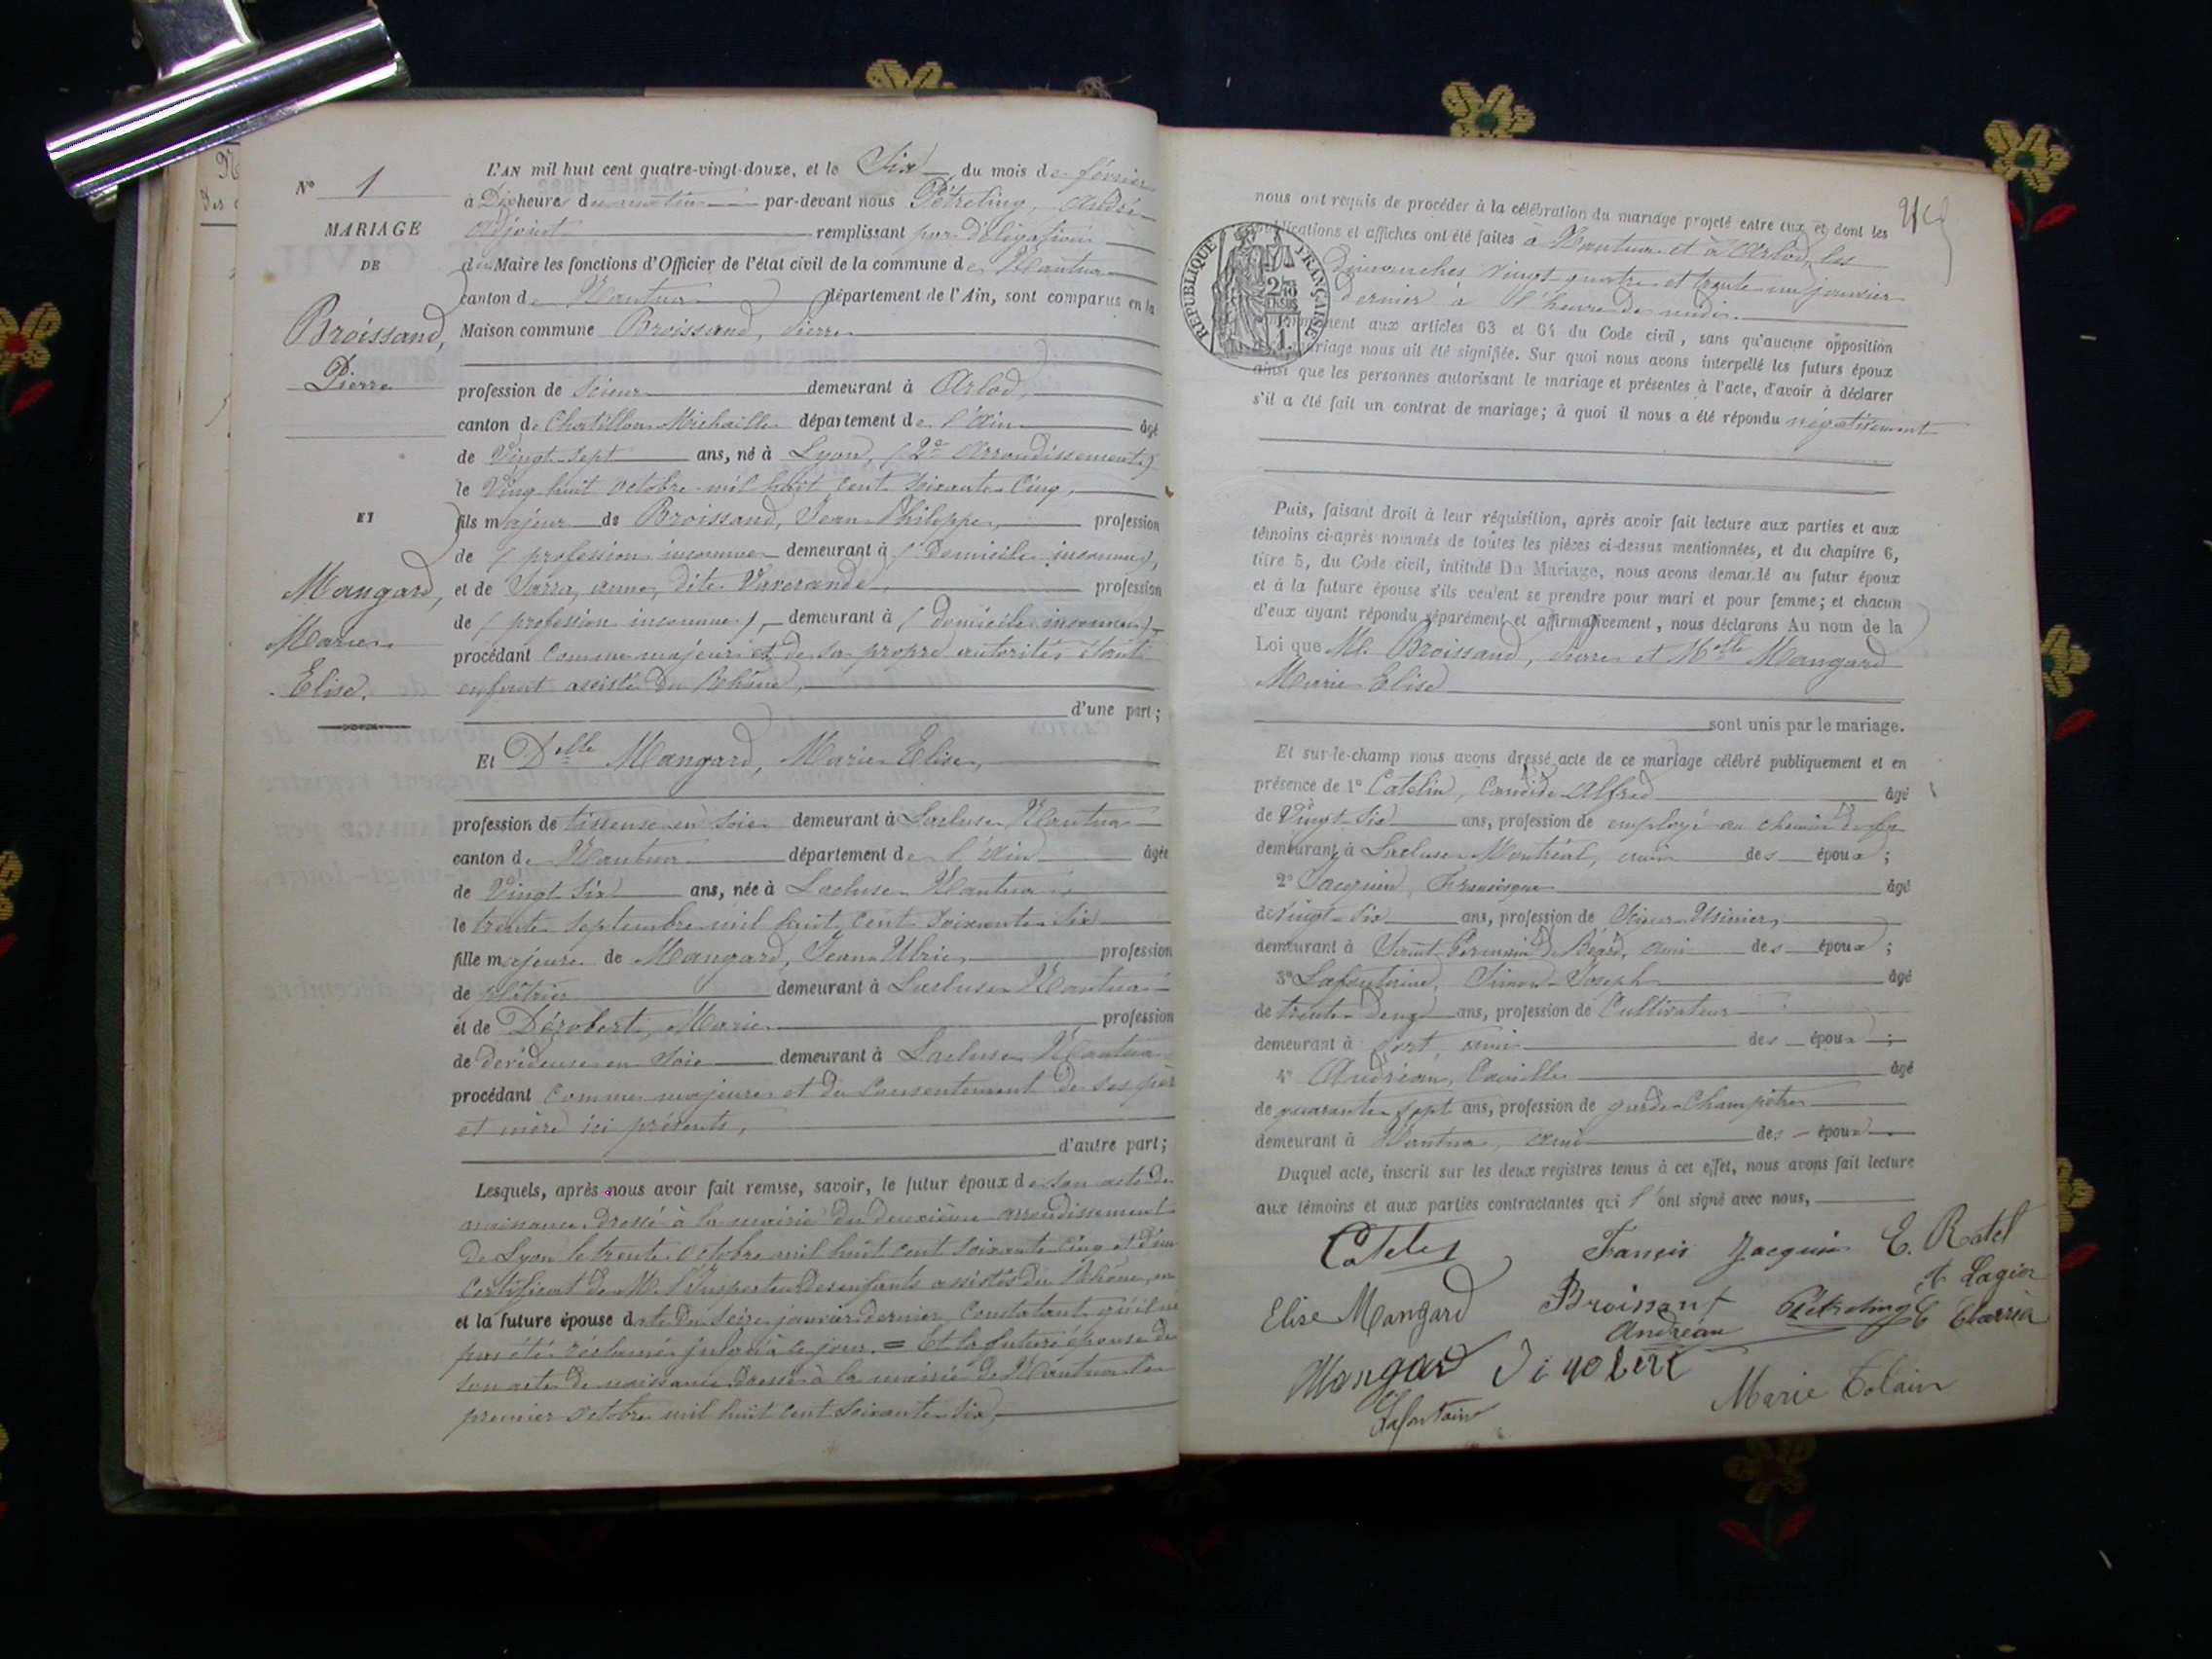 N° 1
MARIAGE
DE
Broissand,
Pierre
ET
Mangard,
Marie
Elise.
L'AN mil huit cent quatre-vingt-douze, et le Six du mois de février
à Dix heures du matin par-devant nous Pétreling, André
adjoint remplissant par délégation
du Maire les fonctions d'Officier de l'état civil de la commune de Nantua
canton de Nantua département de l'Ain, sont comparus en la
Maison commune Broissand, Pierre
profession de Scieur demeurant à Arlod,
canton de Chatillon-Michaille département de l'Ain âgé
de Vingt-sept ans, né à Lyon, (2e Arrondissement)
le Ving huit octobre mil huit cent soixante-Cinq,
fils majeur de Broissand, Jean Philippe, profession
de (profession inconnue demeurant à (domicile inconnu),
et de Sarra, anne, dite Vaverande, profession
de (profession inconnue), demeurant à (domicile inconnu),
procédant comme majeur et de sa propre autorité étant
enfant assisté du Rhône,
d'une part;
Et Delle Mangard, Marie Elise,
profession de tisseuse en soie demeurant à Lacluse Nantua
canton de Nantua département de l'Ain âgée
de Vingt Six ans, née à Lacluse Nantua
le trente septembre mil huit cent soixante-Six
fille majeure de Mangard, Jean Ulric, profession
de plâtrier demeurant à Lacluse Nantua
et de Dérobert, Marie profession
de dévideuse en soie demeurant à Lacluse Nantua
procédant comme majeure et du consentement de ses père
et mère ici présents,
d'autre part;
Lesquels, après nous avoir fait remise, savoir, le futur époux de son acte de
naissance dressé à la mairie du deuxième arrondissement
de Lyon le trente octobre mil huit cent soixante Cinq et d'un
Certificat de M. l'Inspecteur des enfants assistés du Rhône, en
et la future épouse date du seize janvier dernier, constatant qu'il n'a
pas été réclamé jusqu'à ce jour. = Et la future épouse de
son acte de naissance dressé à la mairie de Nantua le
premier octobre mil huit cent soixante-six,
nous ont requis de procéder à la célébration du mariage projeté entre eux et dont les
publications et affiches ont été faites à Nantua et à Arlod, les
dimanches vingt quatre et trente un janvier
dernier à l'heure de midi.
REPUBLIQUE FRANÇAISE
conformément aux articles 63 et 64 du Code civil, sans qu'aucune opposition
mariage nous ait été signifiée. Sur quoi nous avons interpellé les futurs époux
ainsi que les personnes autorisant le mariage et présentes à l'acte, d'avoir à déclarer
s'il a été fait un contrat de mariage; à quoi il nous a été répondu négativement
Puis, faisant droit à leur réquisition, après avoir fait lecture aux parties et aux
témoins ci-après nommés de toutes les pièces ci-dessus mentionnées, et du chapitre 6,
titre 5, du Code civil, intitulé Du Mariage, nous avons demandé au futur époux
et à la future épouse s'ils veulent se prendre pour mari et pour femme; et chacun
d'eux ayant répondu séparément et affirmativement, nous déclarons Au nom de la
Loi que M. Broissand, Pierre et Melle Mangard
Marie Elise
sont unis par le mariage.
Et sur-le-champ nous avons dressé acte de ce mariage célébré publiquement et en
présence de 1° Catelin, Candide Alfred âgé
de Vingt-Six ans, profession de employé au chemin de fer
demeurant à Lacluse-Montréal, ami des époux;
2° Jacquin, Francisque âgé
de vingt-six ans, profession de Scieur-Usinier,
demeurant à Saint Germain de Béard, ami des époux;
3° Lafontaine, Simon-Joseph âgé
de trente-deux ans, profession de Cultivateur
demeurant à Port, ami des époux;
4° Andréan, Camille âgé
de quarante-sept ans, profession de garde-Champêtre
demeurant à Nantua, ami des époux
Duquel acte, inscrit sur les deux registres tenus à cet effet, nous avons fait lecture
aux témoins et aux parties contractantes qui l'ont signé avec nous,
Francis Jacquin E. Ratel
Elise Mangard Broissant Pétreling
Andréan
Mangard
Lafontaine
Marie Tolain